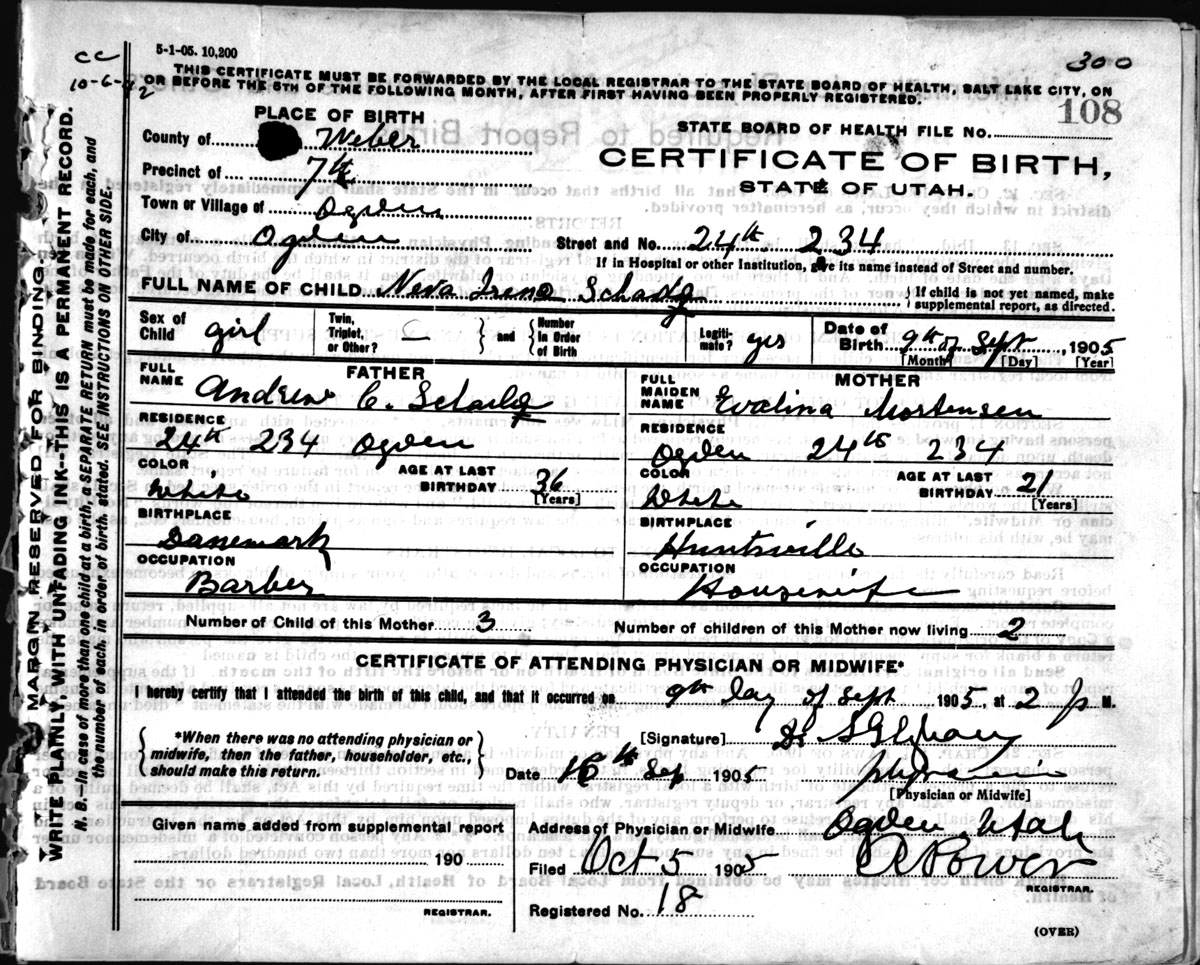 5-1-05. 10,200
cc
10-6-42
300
THIS CERTIFICATE MUST BE FORWARDED BY THE LOCAL REGISTRAR TO THE STATE BOARD OF HEALTH, SALT LAKE CITY, ON
OR BEFORE THE 5TH OF THE FOLLOWING MONTH, AFTER FIRST HAVING BEEN PROPERLY REGISTERED.
108
PLACE OF BIRTH
STATE BOARD OF HEALTH FILE NO.
County of Weber
CERTIFICATE OF BIRTH,
Precinct of 7th
STATE OF UTAH.
Town or Village of Ogden
City of Ogden Street and No. 24th 234
If in Hospital or other Institution, give its name instead of Street and number.
FULL NAME OF CHILD Neva Irene
{ If child is not yet named, make
supplemental report, as directed.
Sex of Child girl Twin, Triplet, or Other? — } and { Number In Order of Birth Legiti- mate? yes Date of Birth 9th of Sept 1905
[Month] [Day] [Year]
FATHER
FULL NAME Andrew C.
RESIDENCE
24th 234 Ogden
COLOR White AGE AT LAST BIRTHDAY 36 [Years]
BIRTHPLACE
Danemark
OCCUPATION
Barber
MOTHER
FULL MAIDEN NAME Evalina Mortensen
RESIDENCE
Ogden 24th 234
COLOR White AGE AT LAST BIRTHDAY 21 [Years]
BIRTHPLACE
Huntsville
OCCUPATION
Housewife
Number of Child of this Mother 3 Number of children of this Mother now living 2
CERTIFICATE OF ATTENDING PHYSICIAN OR MIDWIFE*
I hereby certify that I attended the birth of this child, and that it occurred on 9th day of Sept 1905, at 2 p M.
{ *When there was no attending physician or
midwife, then the father, householder, etc.,
should make this return. }
[Signature] Dr
Date Sep 1905 physician
[Physician or Midwife]
Given name added from supplemental report
190
REGISTRAR.
Address of Physician or Midwife Ogden, Utah
Filed Oct 5 1905 Power
REGISTRAR.
Registered No. 18
(OVER)
MARGIN RESERVED FOR BINDING.
WRITE PLAINLY, WITH UNFADING INK--THIS IS A PERMANENT RECORD.
N. B.--In case of more than one child at a birth, a SEPARATE RETURN must be made for each, and
the number of each, in order of birth, stated. SEE INSTRUCTIONS ON OTHER SIDE.